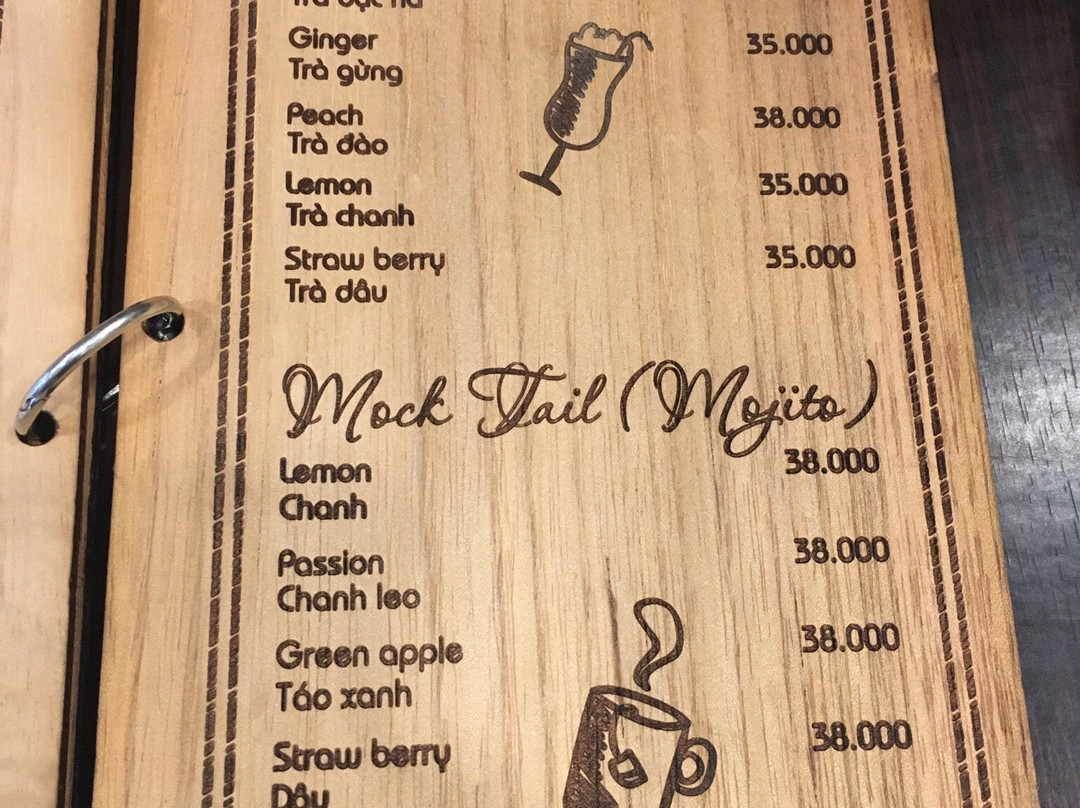 Trà bạc hà
Ginger 35.000
Trà gừng
Peach 38.000
Trà đào
Lemon 35.000
Trà chanh
Straw berry 35.000
Trà dâu
Mock Tail (Mojito)
Lemon 38.000
Chanh
Passion 38.000
Chanh leo
Green apple 38.000
Táo xanh
Straw berry 38.000
Dâu